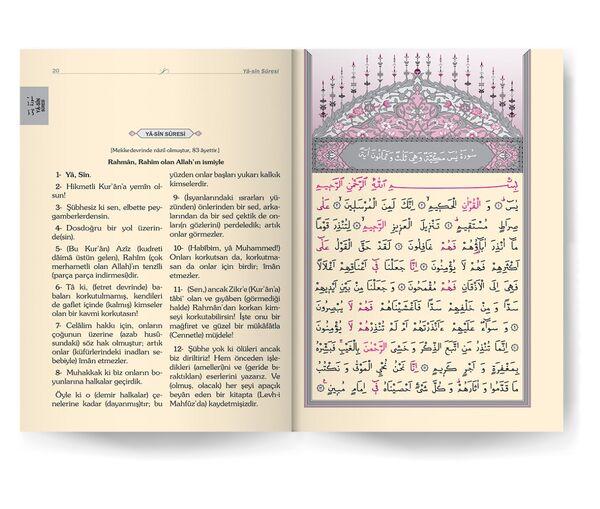 20
Yâ-sîn Sûresi
YÂ-SÎN SÛRESİ
YÂ-SÎN SÛRESİ
[Mekke devrinde nâzil olmuştur, 83 âyettir.]
Rahmân, Rahîm olan Allah'ın ismiyle
1- Yâ, Sîn.
2- Hikmetli Kur'ân'a yemin ol-
sun!
3- Şübhesiz ki sen, elbette pey-
gamberlerdensin.
4- Dosdoğru bir yol üzerin-
de(sin).
5- (Bu Kur'ân) Azîz (kudreti
dâimâ üstün gelen), Rahîm (çok
merhametli olan Allah)'ın tenzîli
(parça parça indirmesi)dir.
6- Tâ ki, (fetret devrinde) baba-
ları korkutulmamış, kendileri
de gaflet içinde (kalmış) kimseler
olan bir kavmi korkutasın!
7- Celâlim hakkı için, onların
çoğunun üzerine (azab husû-
sundaki) söz hak olmuştur; artık
onlar (küfürlerindeki inadları se-
bebiyle) îmân etmezler.
8- Muhakkak ki biz onların bo-
yunlarına halkalar geçirdik.
Öyle ki o (demir halkalar) çe-
nelerine kadar (dayanmış)tır; bu
yüzden onlar başları yukarı kalkık
kimselerdir.
9- (İsyanlarındaki ısrarları yü-
zünden) önlerinden bir sed, arka-
larından da bir sed çektik de on-
ların (gözlerini) perdeledik; artık
onlar görmezler.
10- (Habîbim, yâ Muhammed!)
Onları korkutsan da, korkutma-
san da onlar için birdir; îmân
etmezler.
11- (Sen,) ancak Zikr'e (Kur'ân'a)
tâbi' olan ve gıyâben (görmediği
halde) Rahmân'dan korkan kim-
seyi korkutabilirsin! İşte onu bir
mağfiret ve güzel bir mükâfâtla
(Cennetle) müjdele!
12- Şübhe yok ki ölüleri ancak
biz diriltiriz! Hem önceden işle-
dikleri (amelleri)ni ve (geride bı-
raktıkları) eserlerini yazarız. Ve
(olmuş, olacak) her şeyi apaçık
beyân eden bir kitabta (Levh-i
Mahfûz'da) kaydetmişizdir.
سُورَةُ يٰسۤ مَكِّيَّةٌ وَهِيَ ثَلٰثٌ وَثَمَانُونَ اٰيَةً
بِسْمِ اللّٰهِ الرَّحْمٰنِ الرَّحِيمِ
يٰسۤ ۞ وَالْقُرْاٰنِ الْحَكِيمِ ۞ اِنَّكَ لَمِنَ الْمُرْسَلِينَ ۞ عَلٰى
صِرَاطٍ مُسْتَقِيمٍ ۞ تَنْزِيلَ الْعَزِيزِ الرَّحِيمِ ۞ لِتُنْذِرَ قَوْمًا
مَا اُنْذِرَ اٰبَاؤُهُمْ فَهُمْ غَافِلُونَ ۞ لَقَدْ حَقَّ الْقَوْلُ عَلٰى
اَكْثَرِهِمْ فَهُمْ لَا يُؤْمِنُونَ ۞ اِنَّا جَعَلْنَا فِى اَعْنَاقِهِمْ اَغْلَالًا
فَهِىَ اِلَى الْاَذْقَانِ فَهُمْ مُقْمَحُونَ ۞ وَجَعَلْنَا مِنْ بَيْنِ اَيْدِيهِمْ
سَدًّا وَمِنْ خَلْفِهِمْ سَدًّا فَاَغْشَيْنَاهُمْ فَهُمْ لَا يُبْصِرُونَ
۞ وَسَوَاءٌ عَلَيْهِمْ ءَاَنْذَرْتَهُمْ اَمْ لَمْ تُنْذِرْهُمْ لَا يُؤْمِنُونَ
۞ اِنَّمَا تُنْذِرُ مَنِ اتَّبَعَ الذِّكْرَ وَخَشِىَ الرَّحْمٰنَ بِالْغَيْبِ فَبَشِّرْهُ
بِمَغْفِرَةٍ وَاَجْرٍ كَرِيمٍ ۞ اِنَّا نَحْنُ نُحْيِ الْمَوْتٰى وَنَكْتُبُ
مَا قَدَّمُوا وَاٰثَارَهُمْ وَكُلَّ شَىْءٍ اَحْصَيْنَاهُ فِى اِمَامٍ مُبِينٍ ۞